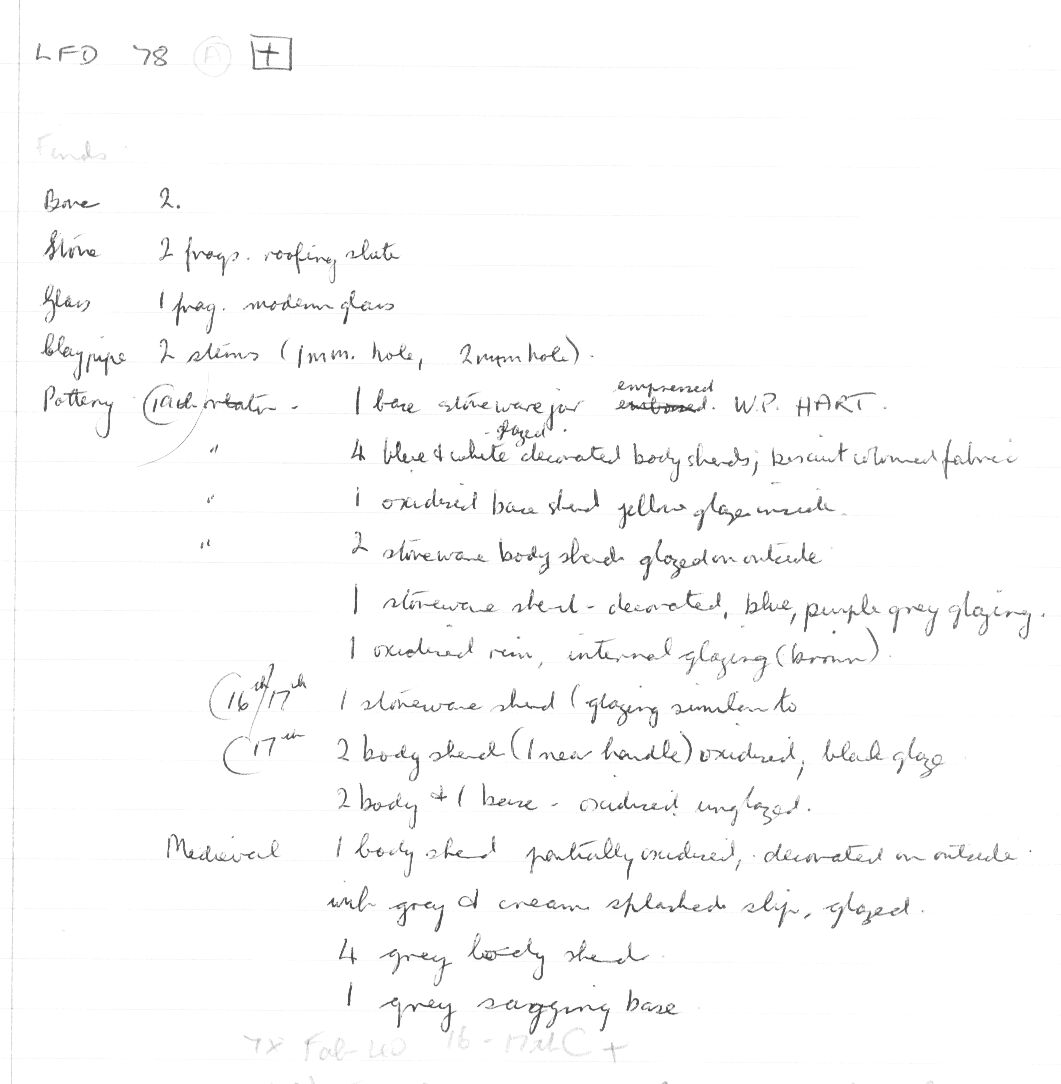 LFD 78 A +
Finds
Bone 2.
Stone 2 frags. roofing slate
Glass 1 frag. modern glass
Claypipe 2 stems (1mm. hole, 2mm hole).
Pottery - 1 base stoneware jar empressed embossed. W.P. HART.
glazed
" 4 blue & white decorated body sherds; biscuit coloured fabric
" 1 oxidised base sherd yellow glaze inside.
" 2 stoneware body sherds glazed on outside
1 stoneware sherd - decorated, blue, purple grey glazing.
1 oxidised rim, internal glazing (brown).
(16th/17th 1 stoneware sherd (glazing similar to
(17th 2 body sherd (1 near handle) oxidised, black glaze
2 body + 1 base - oxidised unglazed.
Medieval 1 body sherd partially oxidised, decorated on outside
with grey & cream splashed slip, glazed.
4 grey body sherd
1 grey sagging base
16 - 17th C +